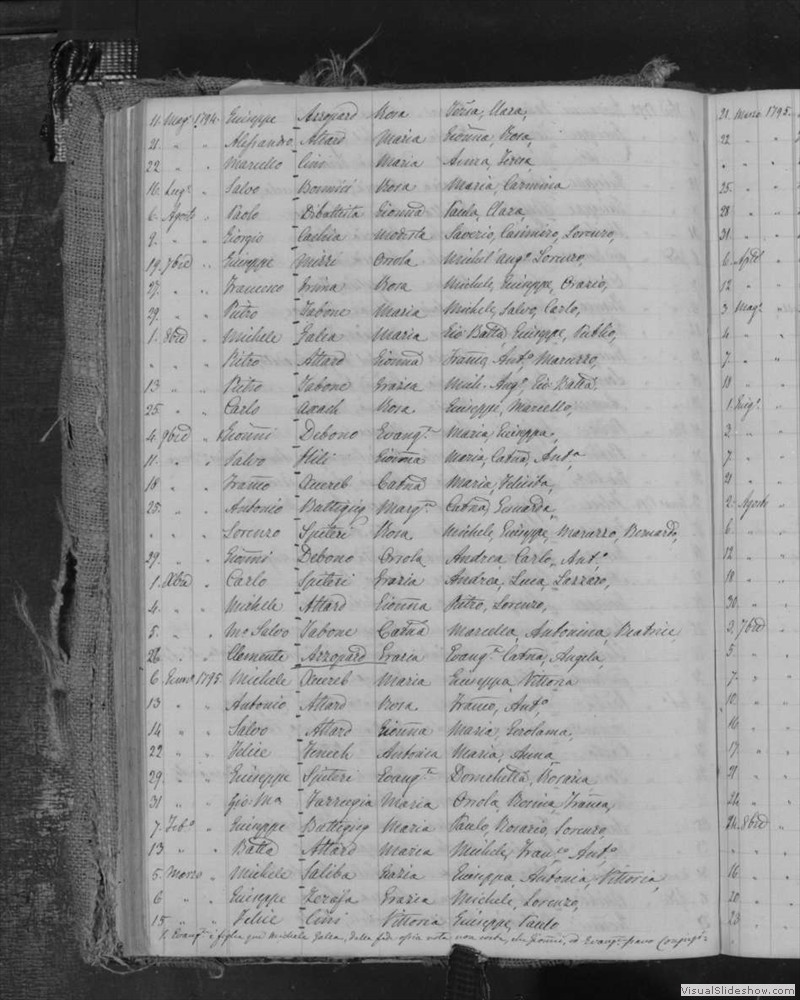 11. Mag.º 1794. Giuseppe Azzopard Rosa Teresa, Clara,
21. " " Alessandro Attard Maria Gionna, Rosa,
22 " " Marcello Cini Maria Anna, Teresa,
16. Lug.º " Salvo Bonnici Rosa Maria, Carmina
6. Agosto " Paolo Dibattista Gionna Paula, Clara,
9. " " Giorgio Modesta Saverio, Casimiro, Lorenzo,
19. 7bre " Giuseppe Mizzi Orsola Michel'Ang.º Lorenzo,
27. " " Francesco Grima Rosa Michele, Giuseppe, Orazio,
29. " " Pietro Tabone Maria Michele, Salvo, Carlo,
1. 8bre " Michele Galea Maria Gio Batta, Giuseppe, Publio,
" " " Pietro Attard Gionna Franc.º Ant.º Maruzzo,
13 " " Pietro Tabone Grazia Mich. Ang.º Gio Batta.
25. " " Carlo Axach Rosa Giuseppe, Marcello,
4. 9bre " Gionni Debono Evang.ª Maria, Giuseppa,
11. " " Salvo Hili Gionna Maria, Catna, Ant.ª
18 " " Franco Xuereb Catna Maria, Felicita,
25. " " Antonio Battigieg Marg.ª Catna,
" " " Lorenzo Spiteri Rosa Michele, Giuseppe, Maruzzo, Bernardo,
29. " " Gionni Debono Orsola Andrea, Carlo, Ant.º
1. Xbre " Carlo Spiteri Grazia Andrea, Luca, Lazzaro,
4. " " Michele Attard Gionna Pietro, Lorenzo,
5. " " Salvo Tabone Catna Marcella, Antonina, Beatrice
26 " " Clemente Azzopard Grazia Evang.ª Catna, Angela
6. 1795 Michele Xuereb Maria Giuseppa, Vittoria
13 " " Antonio Attard Rosa Franco, Ant.º
14 " " Salvo Attard Gionna Maria, Gerolama,
22 " " Felice Fenech Antonia Maria, Anna
29. " " Giuseppe Spiteri Evang.ª Domenella, Rosaria
31 " " Gio: Ma Farrugia Maria Orsola, Rosina, Franca,
7. Feb.º " Giuseppe Buttigieg Maria Paulo, Rosario, Lorenzo
13 " " Batta Attard Maria Michele, Franc.º Ant.º
5. Marzo " Michele Saliba Grazia Giuseppa, Antonia, Vittoria,
6 " " Giuseppe Zerafa Grazia Michele, Lorenzo,
15 " " Felice Cini Vittoria Giuseppe, Paulo
Evang.ª è figlia Michele Galea, della
21. Marzo 1795.
22 " "
" " "
25. " "
28 " "
31. " "
6. April
12 " "
3. Mag.º
4. "
7. "
18 "
1. Giug.º
2. "
7 "
21 "
2. Agosto
6. "
12 "
18 "
30. "
2. 7bre
5. "
7. "
10. "
16 "
17 "
21 "
24 "
24. 8bre
" "
16 "
20 "
23 "
VisualSlideshow.com